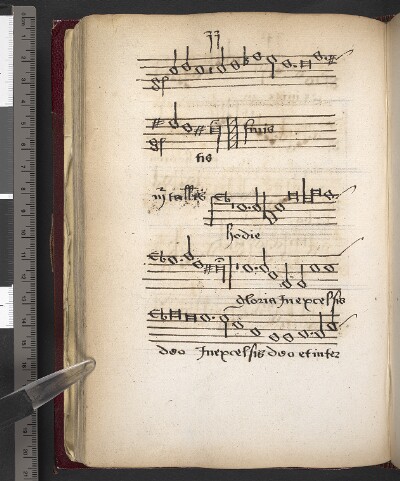 finis
tis
mr tallis
hodie
Gloria In excelsis
deo In excelsis deo et in ter